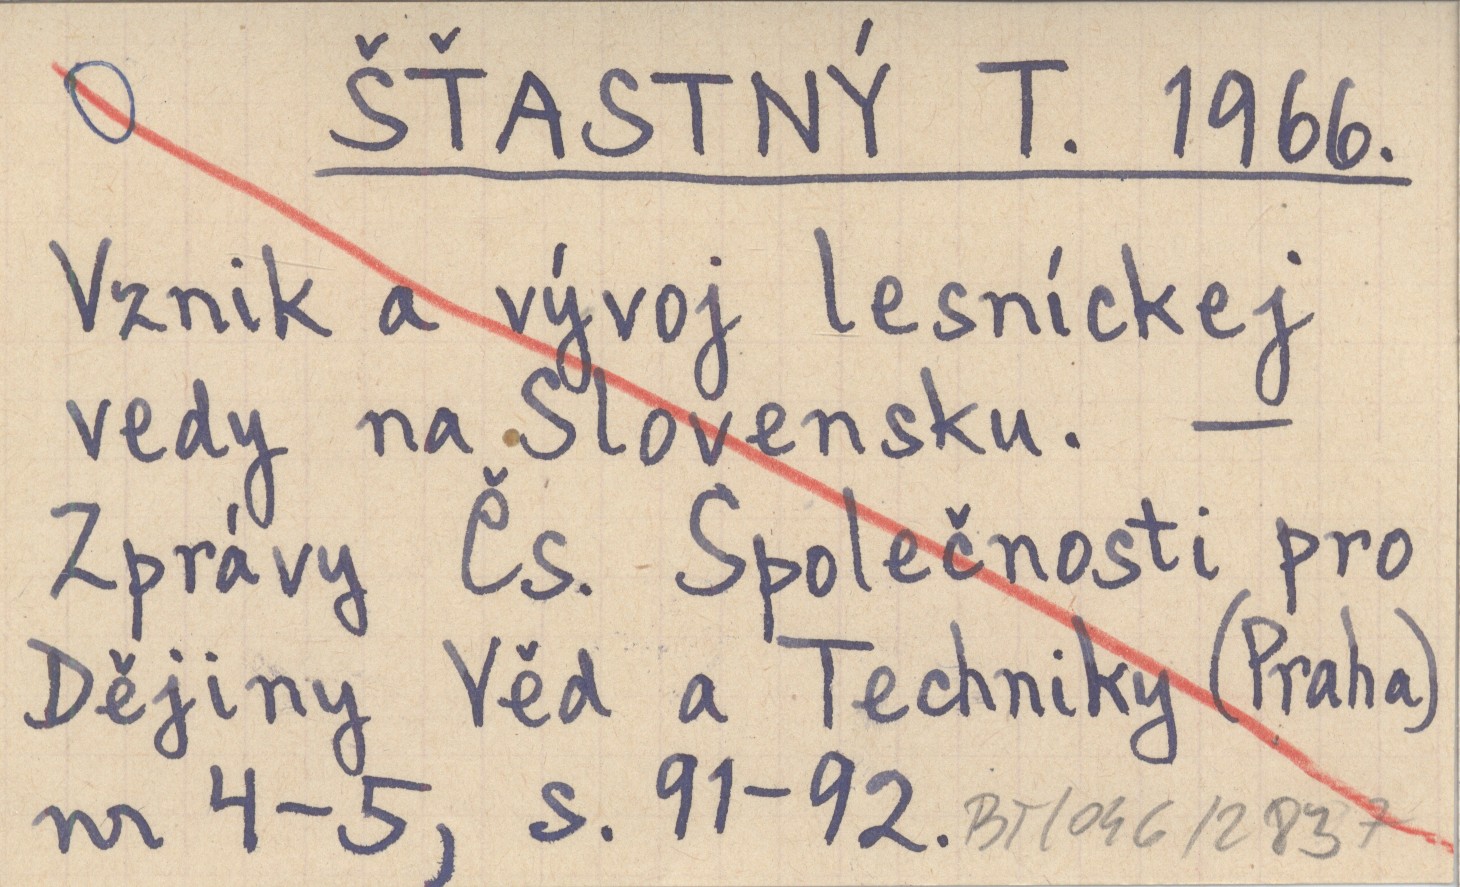 ŠŤASTNÝ T. 1966.
Vznik a vývoj lesníckej
vedy na Slovensku. —
Zprávy Čs. Společnosti pro
Dějiny Věd a Techniky (Praha)
nr 4-5, s. 91-92. BT/046/2837